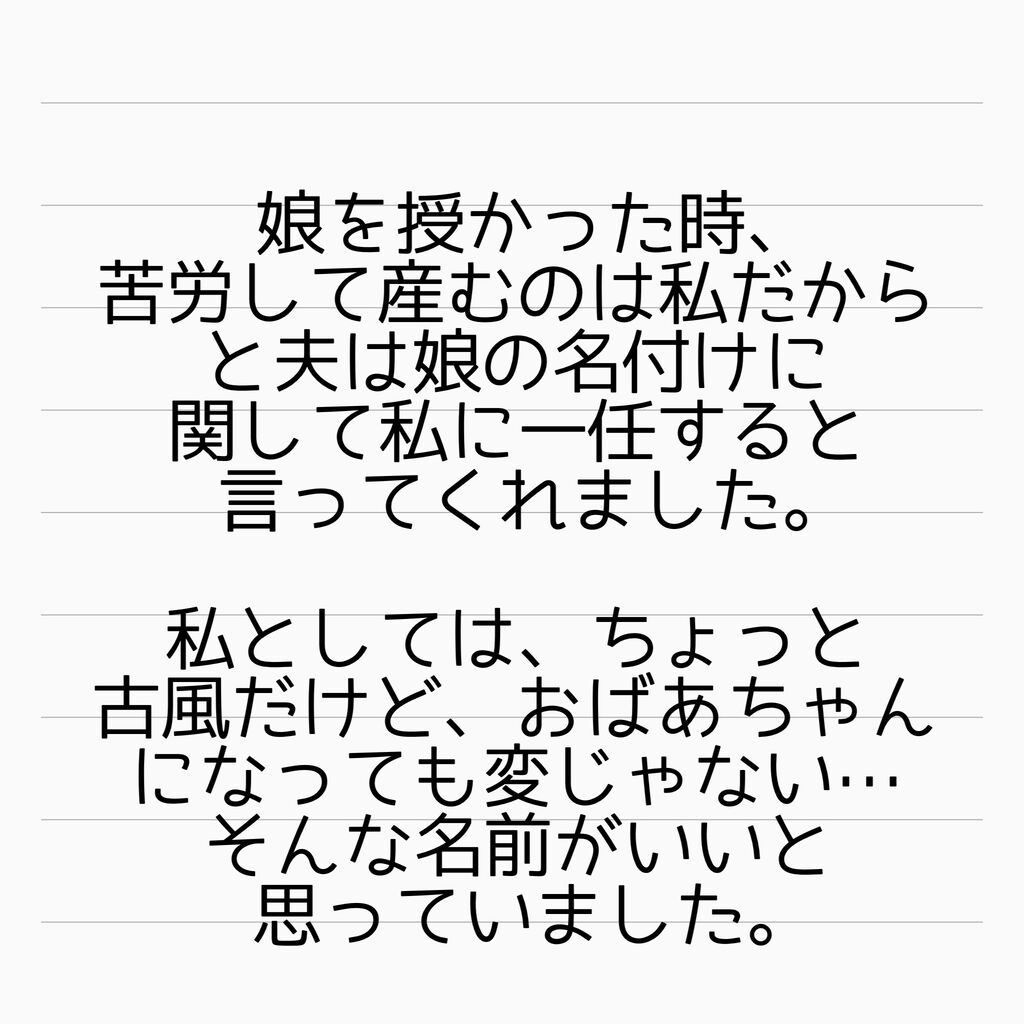 娘を授かった時、
苦労して産むのは私だから
と夫は娘の名付けに
関して私に一任すると
言ってくれました。
私としては、ちょっと
古風だけど、おばあちゃん
になっても変じゃない…
そんな名前がいいと
思っていました。